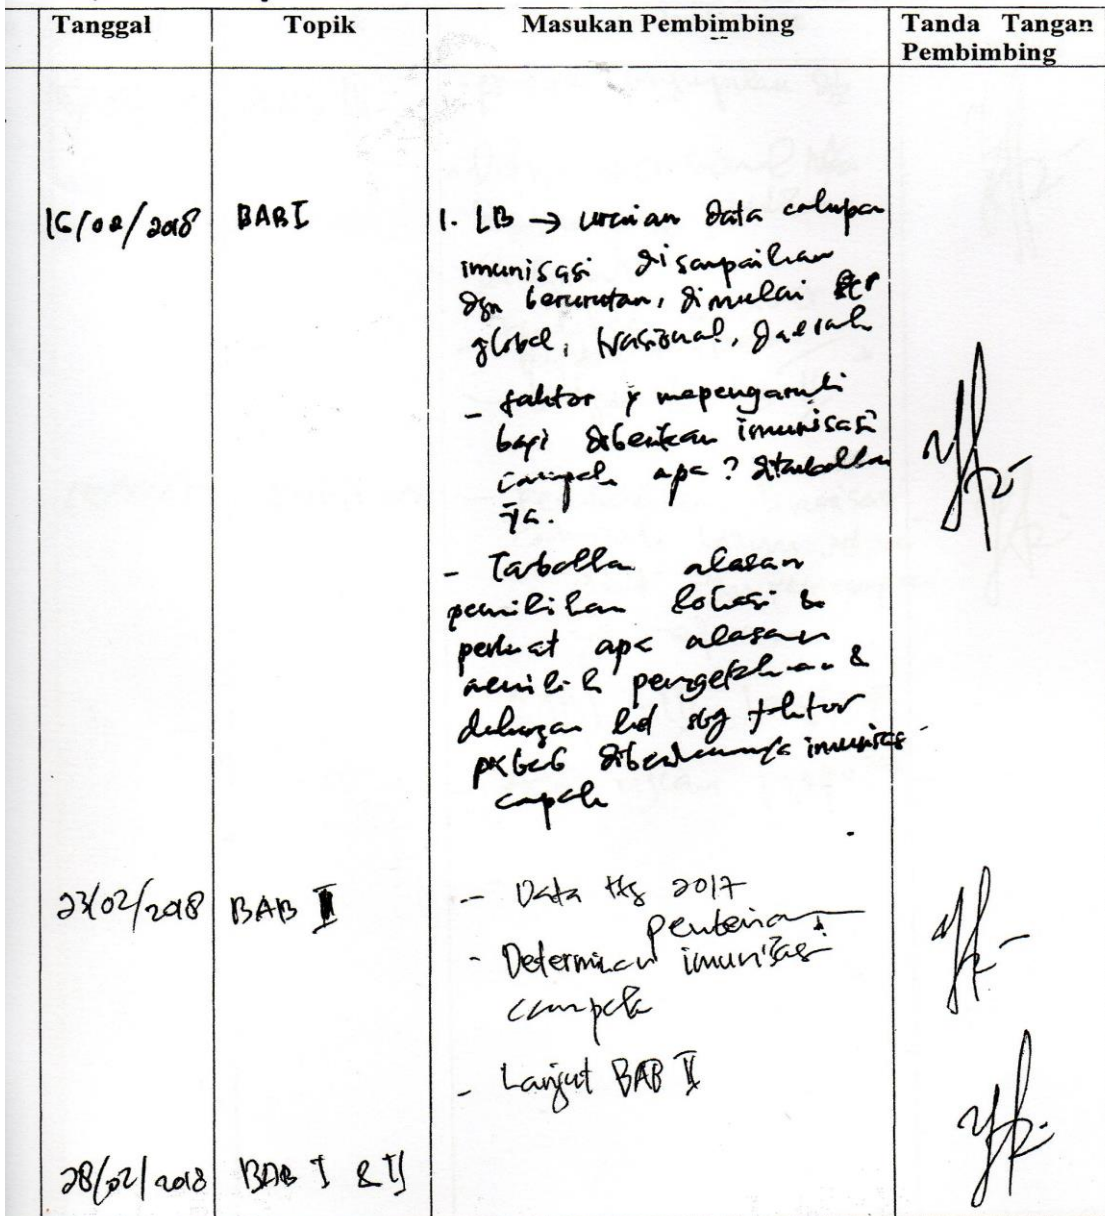 Tanggal Topik Masukan Pembimbing Tanda Tangan
Pembimbing
16/02/2018 BAB I 1. LB → uraian data cakupan
imunisasi disampaikan
dgn berurutan, dimulai
global, Nasional, daerah
- faktor y mepengaruhi
bayi diberikan imunisasi
campak apa? ditambahkan
ya.
- Tambahkan alasan
pemilihan lokasi &
perkuat apa alasan
memilih pengetahuan &
dukungan kel sbg faktor
diberikannya imunisasi
campak
23/02/2018 BAB I - Data 2017
pemberian
- Determinan imunisasi
campak
- Lanjut BAB II
28/02/2018 BAB I & II